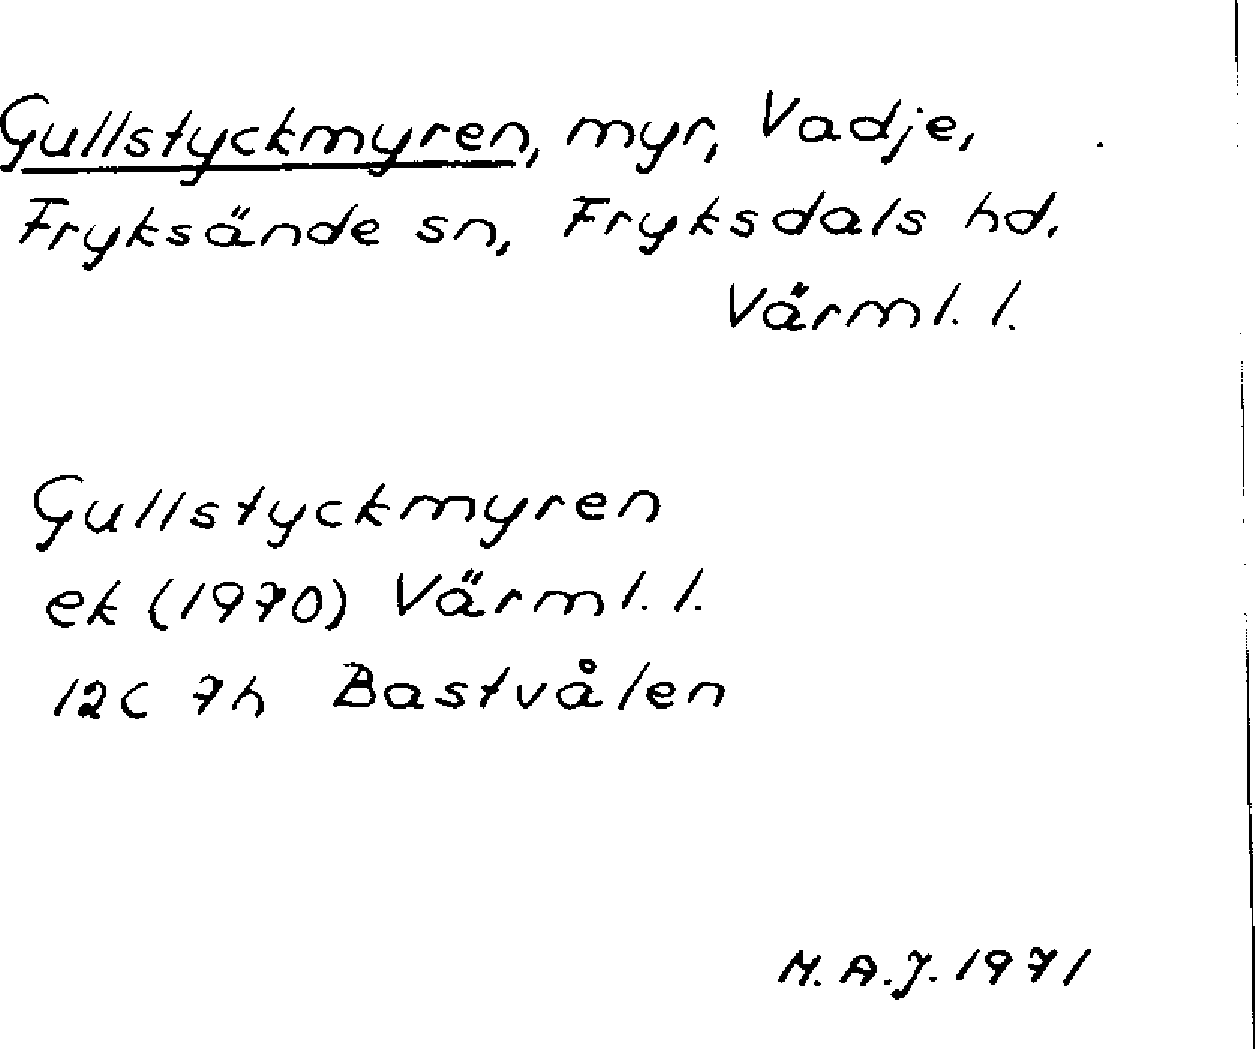 Gullstyckmyren, myr, Vadje,
Fryksände sn, Fryksdals hd.
Värml. l.
Gullstyckmyren
ek (1970) Värml. l.
12C 7h Bastvålen
M.A.J. 1971